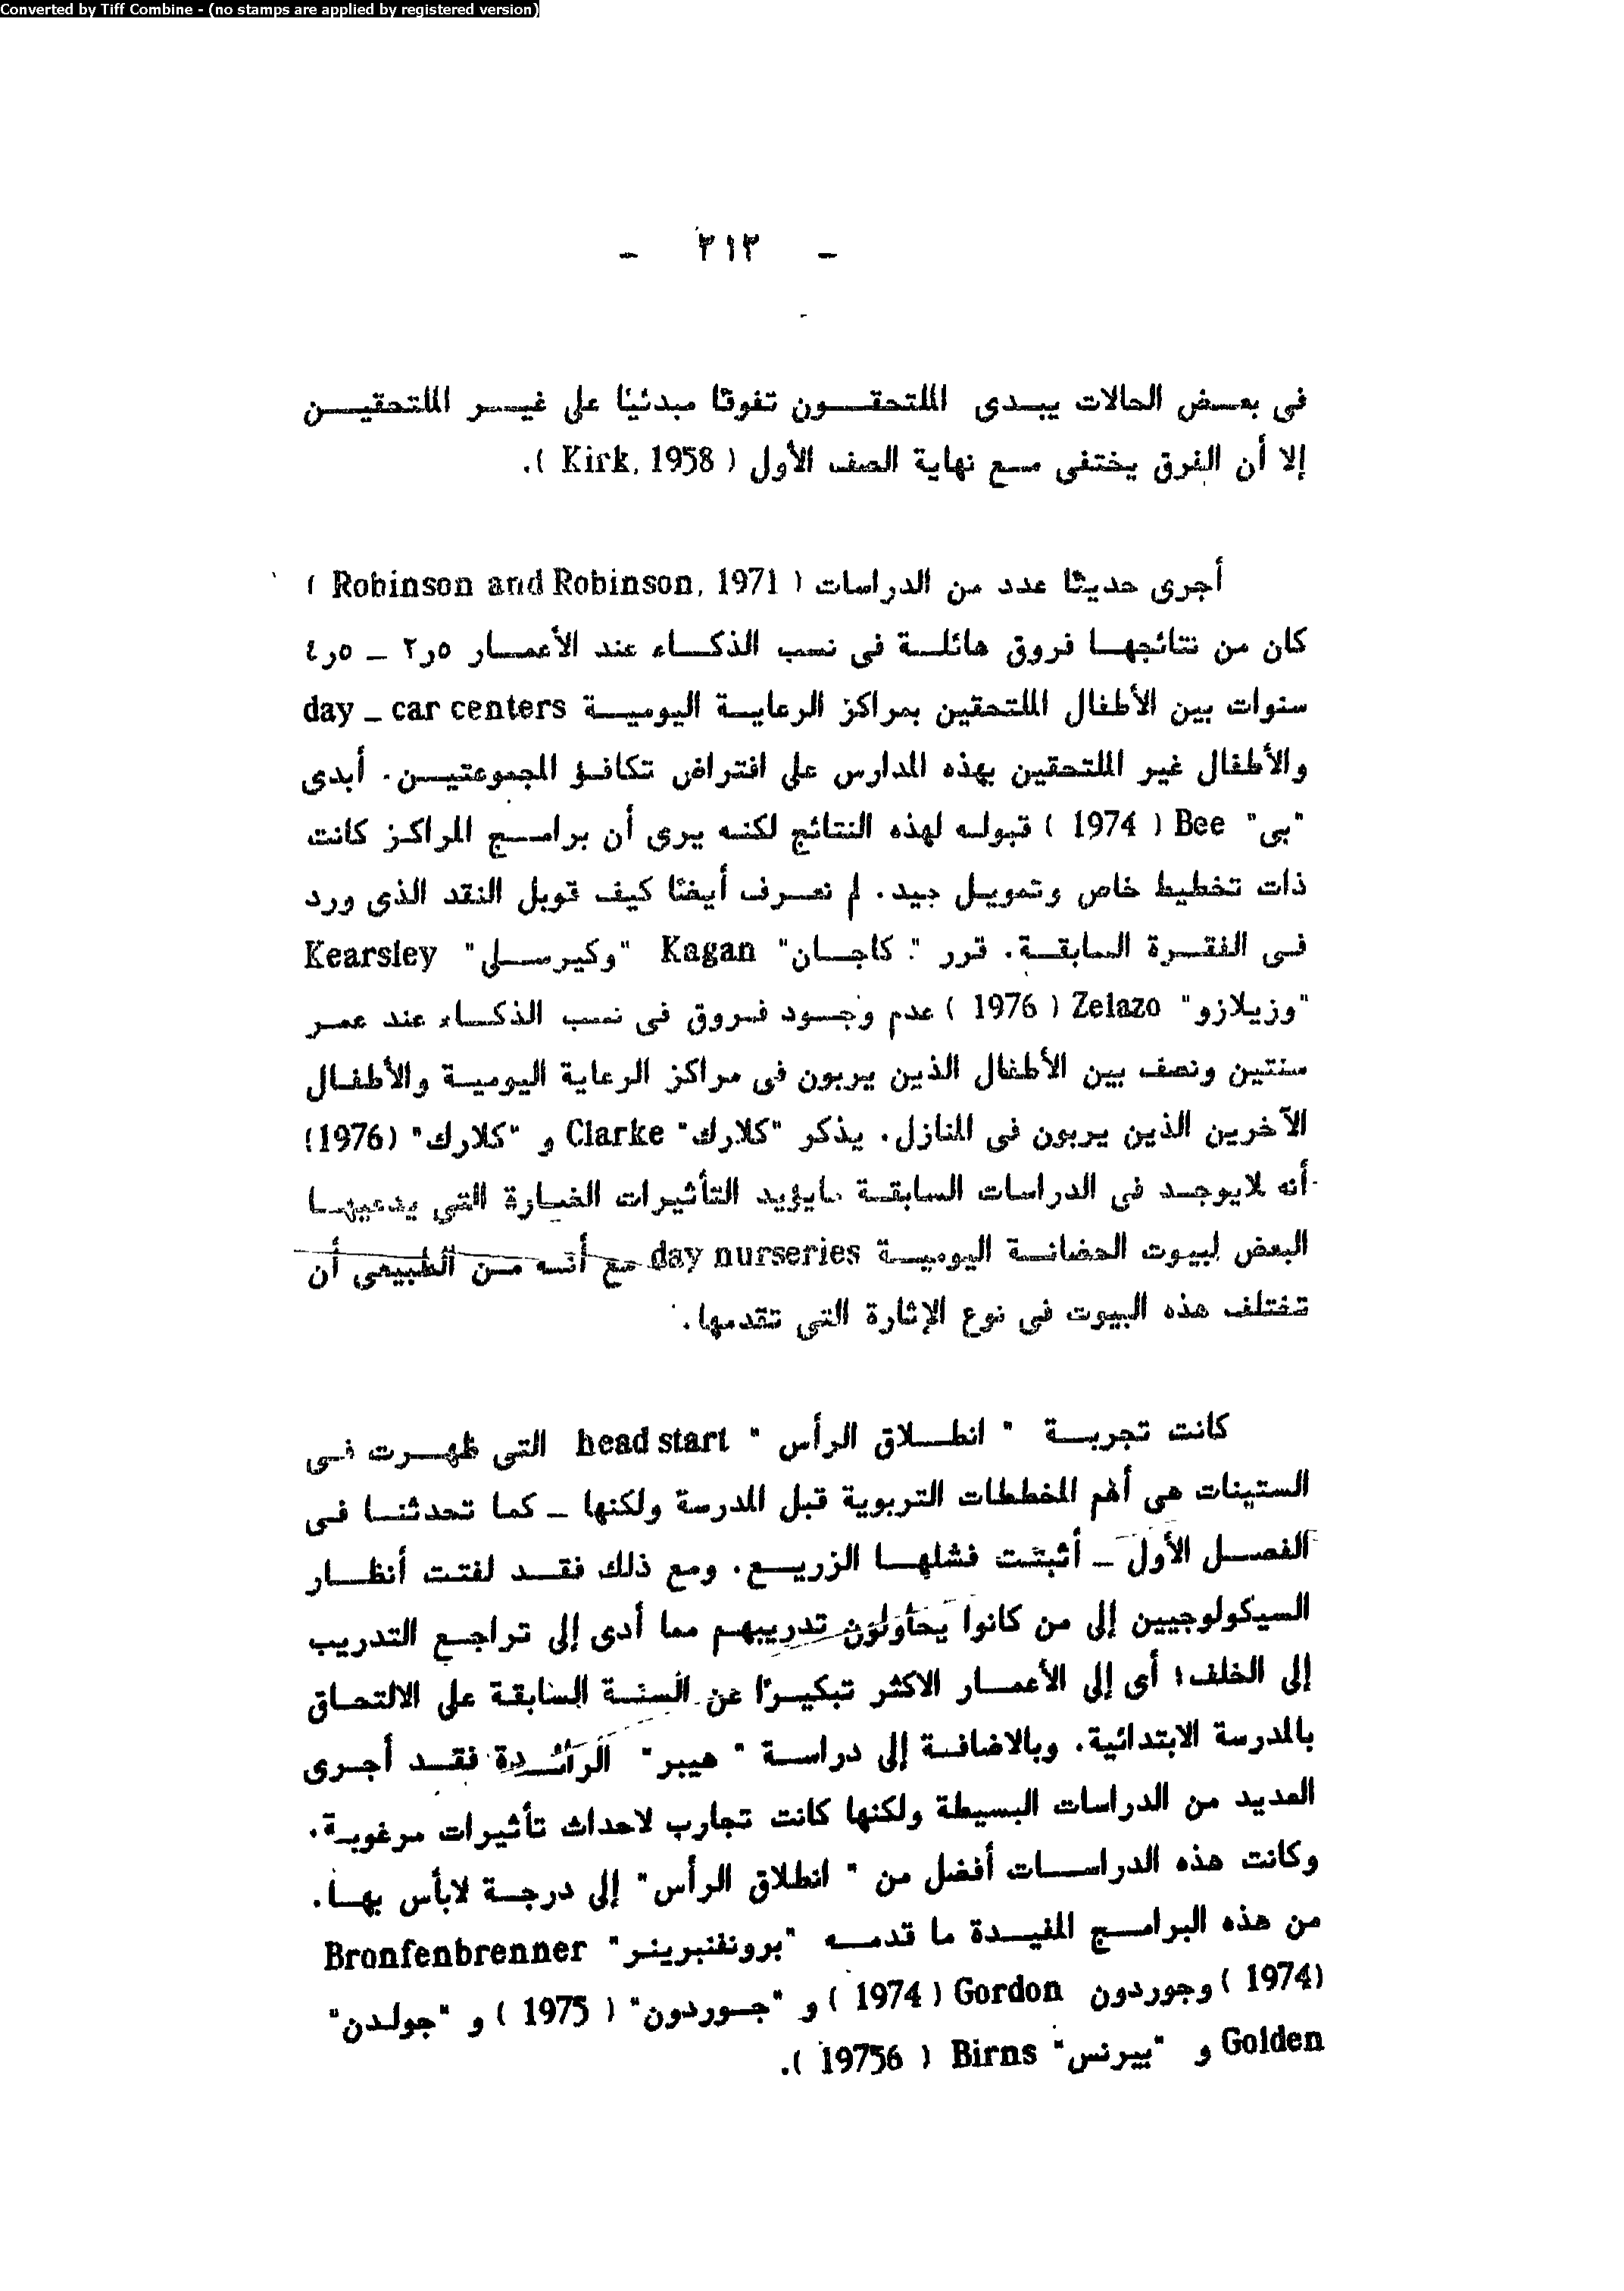 Converted by Tiff Combine - (no stamps are applied by registered version)
- ٢١٢ -
فى بعض الحالات يبدى الملتحقون تفوقًا مبدئيًا على غير الملتحقين
إلا أن الفرق يختفى مع نهاية الصف الأول ( Kirk, 1958 ).
أجرى حديثًا عدد من الدراسات ( Robinson and Robinson, 1971 )
كان من نتائجها فروق هائلة فى نسب الذكاء عند الأعمار ٥ر٢ - ٥ر٤
سنوات بين الأطفال الملتحقين بمراكز الرعاية اليومية day - car centers
والأطفال غير الملتحقين بهذه المدارس على افتراض تكافؤ المجموعتين. أبدى
"بى" Bee ( 1974 ) قبوله لهذه النتائج لكنه يرى أن برامج المراكز كانت
ذات تخطيط خاص وتمويل جيد. لم نعرف أيضًا كيف قوبل النقد الذى ورد
فى الفقرة السابقة. قرر "كاجان" Kagan "وكيرسلى" Kearsley
"وزيلازو" Zelazo ( 1976 ) عدم وجود فروق فى نسب الذكاء عند عمر
سنتين ونصف بين الأطفال الذين يربون فى مراكز الرعاية اليومية والأطفال
الآخرين الذين يربون فى المنازل. يذكر "كلارك" Clarke و "كلارك" (1976)
أنه لايوجد فى الدراسات السابقة مايؤيد التأثيرات الضارة التى يدعيها
البعض لبيوت الحضانة اليومية day nurseries مع أنه من الطبيعى أن
تختلف هذه البيوت فى نوع الإثارة التى تقدمها.
كانت تجربة " انطلاق الرأس " head start التى ظهرت فى
الستينات هى أهم المخططات التربوية قبل المدرسة ولكنها - كما تحدثنا فى
الفصل الأول - أثبتت فشلها الزريع. ومع ذلك فقد لفتت أنظار
السيكولوجيين إلى من كانوا يحاولون تدريبهم مما أدى إلى تراجع التدريب
إلى الخلف؛ أى إلى الأعمار الاكثر تبكيرًا عن السنة السابقة على الالتحاق
بالمدرسة الابتدائية. وبالاضافة إلى دراسة " هيبر" الرائدة فقد أجرى
العديد من الدراسات البسيطة ولكنها كانت تجارب لاحداث تأثيرات مرغوبة.
وكانت هذه الدراسات أفضل من " انطلاق الرأس" إلى درجة لابأس بها.
من هذه البرامج المفيدة ما قدمه "برونفنبرينر" Bronfenbrenner
(1974 ) وجوردون Gordon ( 1974 ) و "جوردون" ( 1975 ) و "جولدن"
Golden و "بيرنس" Birns ( 19756 ).